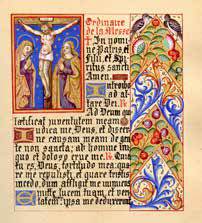 Ordinaire
de la Messe
In nomi
ne Patris, et
Filii, et Spi
ritus sancti
Amen.
Introibo
ad al
tare Dei. ℟.
Ad Deum qui
lætificat juventutem meam
Judica me, Deus, et discer
ne causam meam de gen
te non sancta; ab homine ini
quo et doloso erue me. ℟. Quia
tu es, Deus, fortitudo mea: qua
re me repulisti, et quare tristis
incedo, dum affligit me inimicus
Emitte lucem tuam et veri
tatem: ipsa me deduxerunt